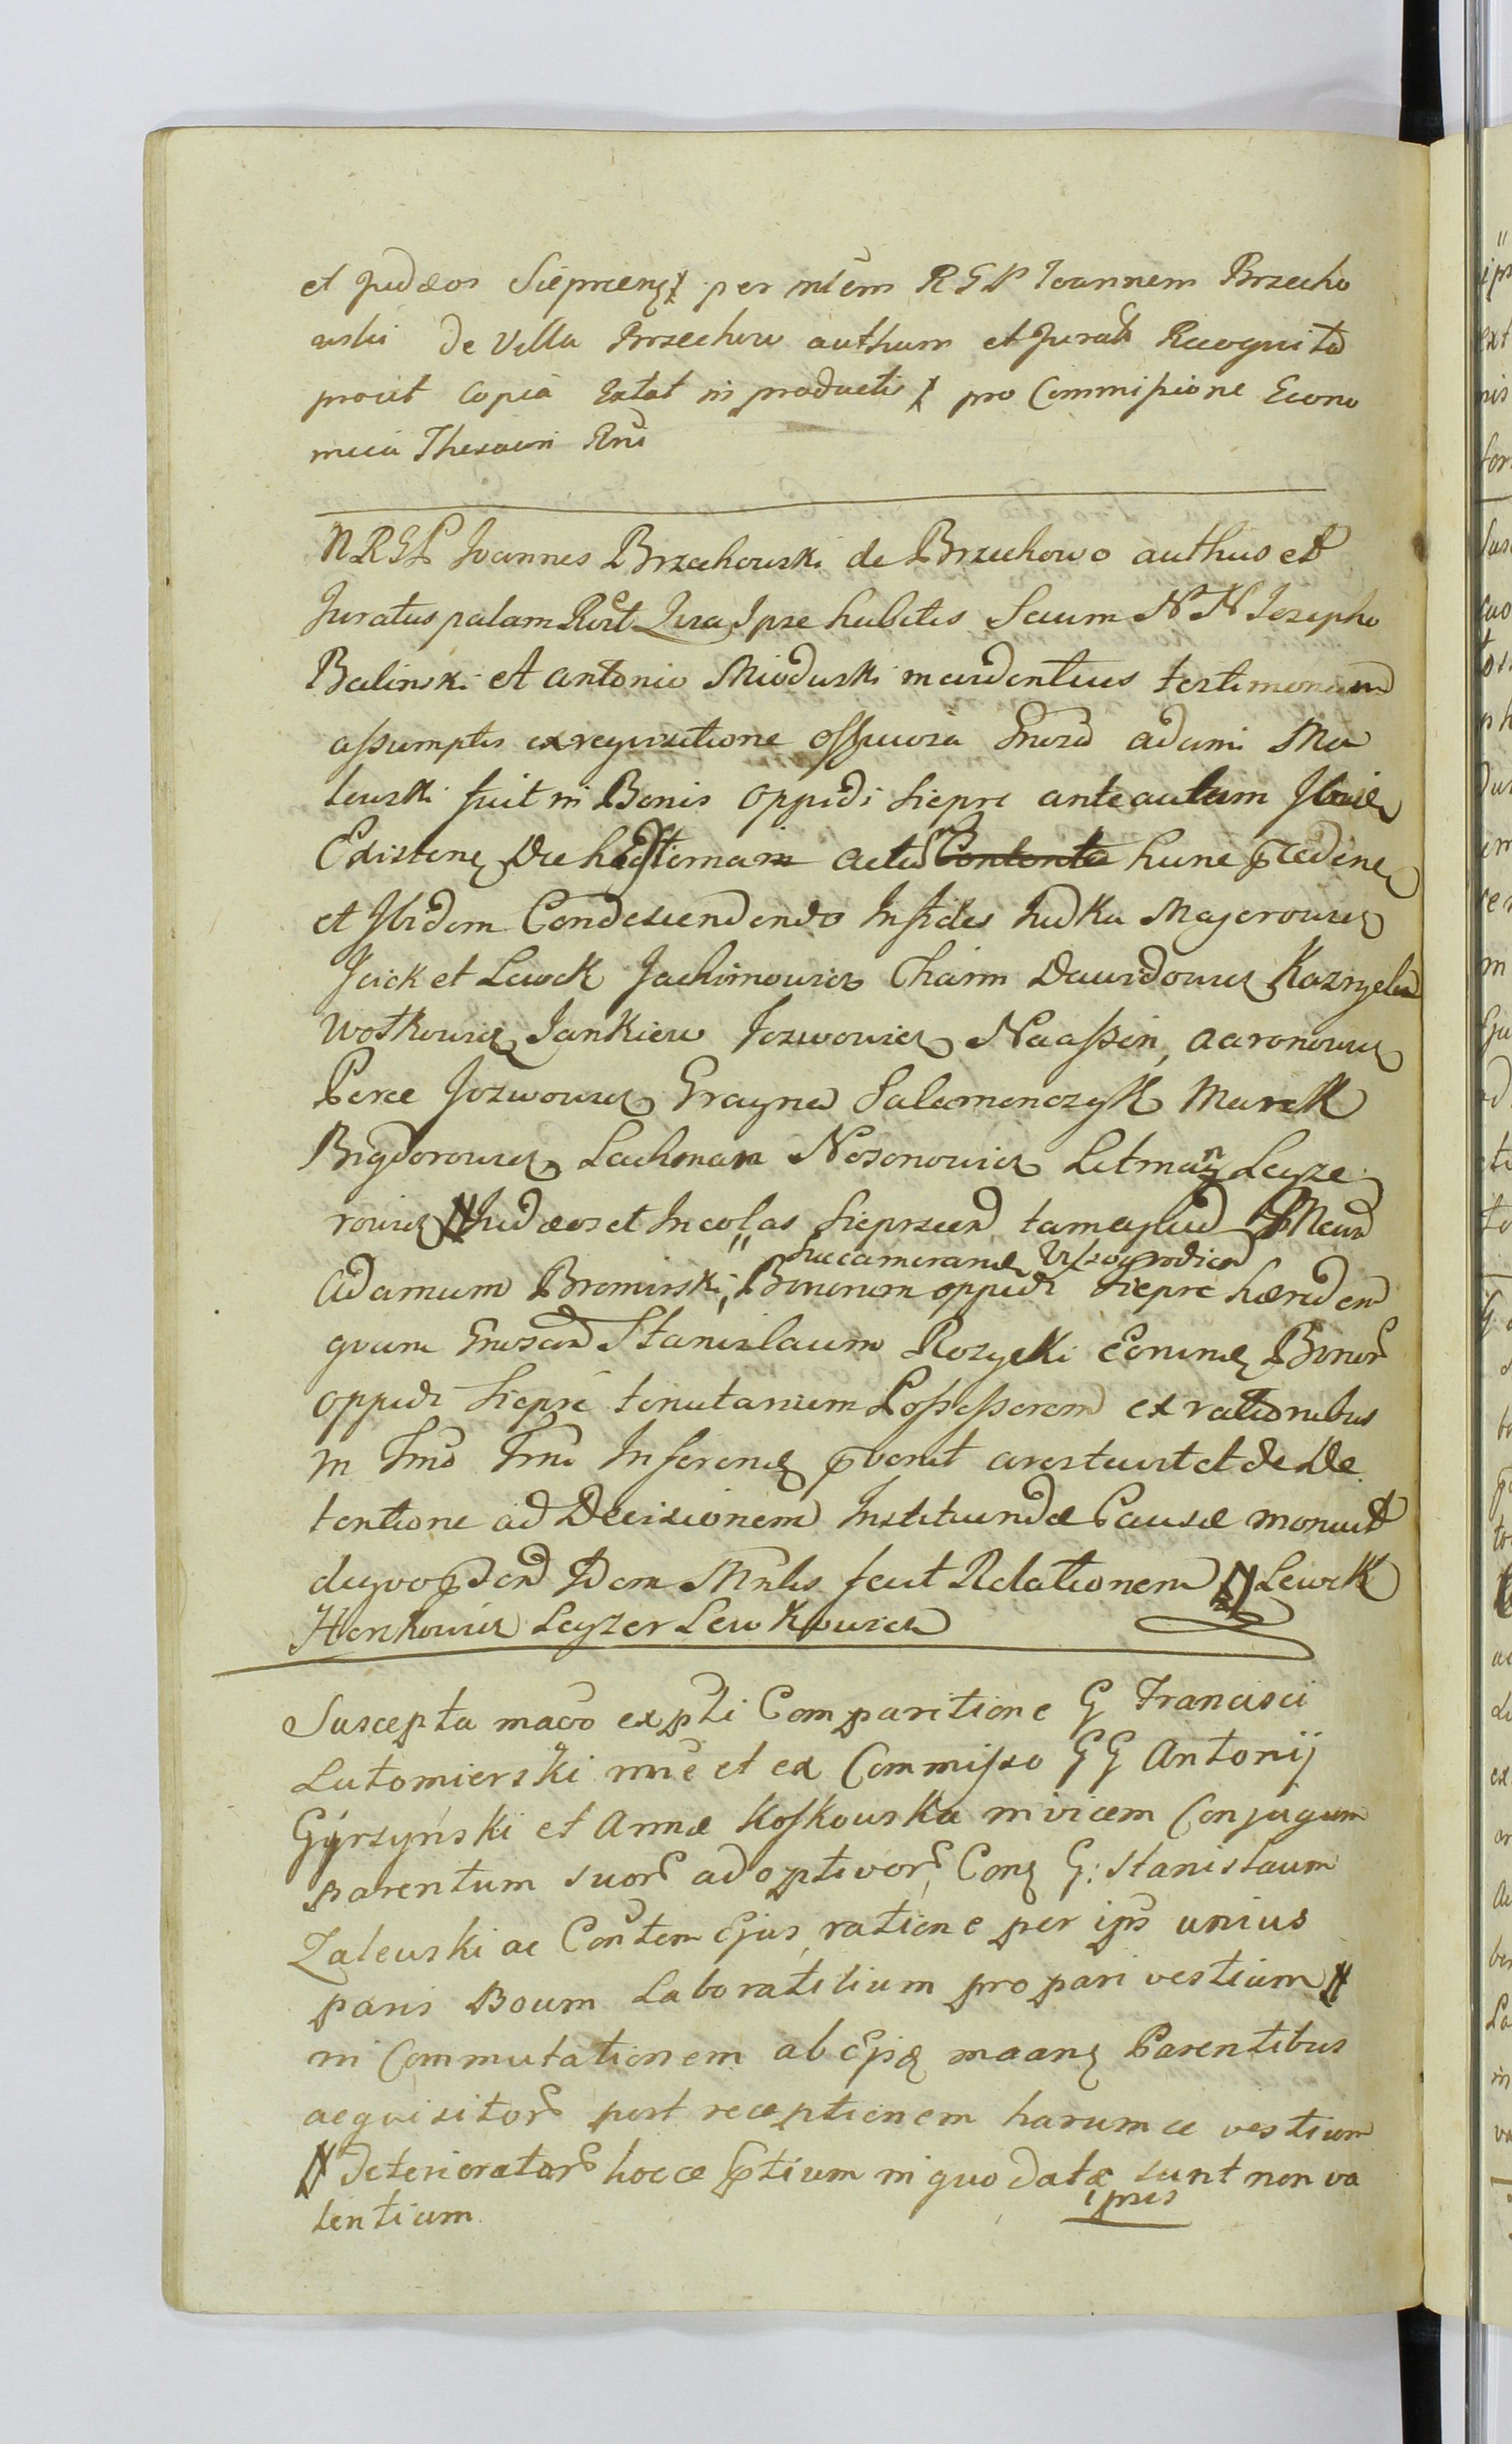 et Judæos Sieprcens per mtem RGP Joannem Brzecho
wski De Villa Brzechow authum et Jurat Recognita
prout Copia Extat in productis pro Commissione Econo
mica Thesauri Rni
NRGP Joannes Brzechowski de Brzechowo authus et
Juratus palam Rcit Quia Ipse habitis Secum NN Josepho
Balinski et Antonio Mioduski in evidentius testimonium
assumptis ex requisitione officiosa Gnosd Adami Ma
lewski fuit in Bonis Oppidi Sieprc ante aulam Ibid
Existen Die Hesterna actus Contenta hunc præceden
et Ibidem Condescendendo Infideles Judka Majerowicz
Jcick et Lewek Jachimowicz Chaim Dawidowicz Kazryel
Wolkowicz Jankiew Jozwowicz Naassen, Aaronowicz
Perec Jozwowicz Grayna Salomonczyk Marek
Bigdorowicz Lachman Nosonowicz Litman Leyze
rowicz Judæos et Incolas Sieprcen tam apud M
Succamerand Wyszogrodien
Adamum Bromirski, Bonorum oppidi Sieprc hæredem
quam Gnosum Stanislaum Rozycki eorund Bonor
oppidi Sieprc tenutarium Possessorem ex rationibus
in Tmo Tmi Inferend pvenit arestavit et de De
tentione ad Decisionem Instituendæ Causæ monuit
de quo Idem Mnlis fecit Relationem Lewek
Herszkowicz Leyzer Lewkowicz
Suscepta mado expti Comparitione G Francisci
Lutomierski mne et ex Commisso GG Antonij
Gyrzynski et Annæ Koskowska invicem Conjugum
parentum suor adoptivor, Con G: Stanislaum
Zalewski ac Contem Ejus, ratione per ips unius
paris Boum Laboratitium pro pari vestium
in Commutationem ab Ejsd maan Parentibus
aequisitor post receptionem harumce vestium
Deteriorator hocce ptium in quo datæ sunt non va
lentium
ipsis